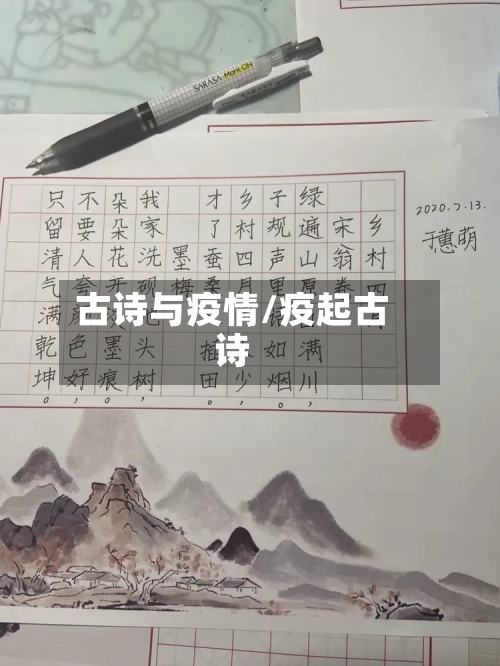 SARASA Mark ON
2020.2.13.
于蕙萌
乡村四
宋 翁卷
绿遍山原 满川，
子规声里 如烟。
乡村四月 少，
才了蚕桑 插田。
墨梅
我家洗砚 头树，
朵朵花开 墨痕。
不要人夸颜色好，
只留清气满乾坤。
古诗与疫情/疫起古
诗